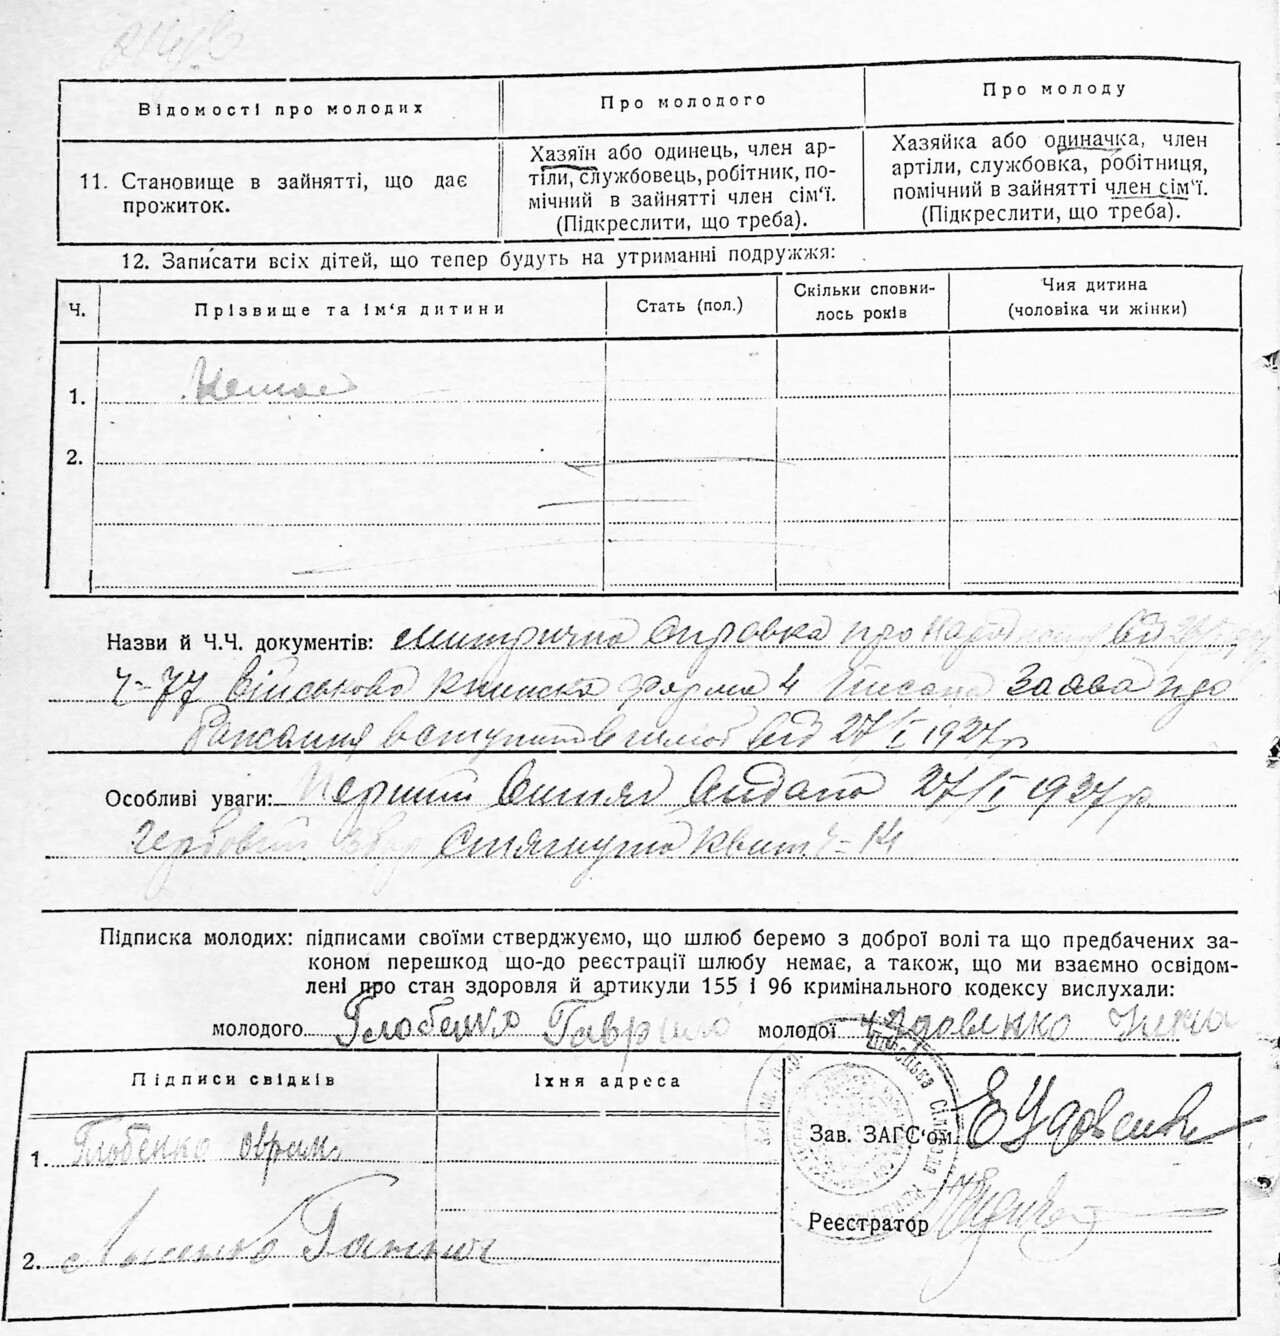 Відомості про молодих
Про молодого
Про молоду
11. Становище в зайнятті, що дає
прожиток.
Хазяїн або одинець, член ар-
тіли, службовець, робітник, по-
мічний в зайнятті член сім'ї.
(Підкреслити, що треба).
Хазяйка або одиначка, член
артіли, службовка, робітниця,
помічний в зайнятті член сім'ї.
(Підкреслити, що треба).
12. Записати всіх дітей, що тепер будуть на утриманні подружжя:
Ч.
Прізвище та ім'я дитини
Стать (пол.)
Скільки сповни-
лось років
Чия дитина
(чоловіка чи жінки)
1. Немає
2.
Назви й Ч.Ч. документів: Метрична справка про народження від
Ч-77 Військова книжка форма 4 Писана Заява про
бажання вступити в шлюб від 27/I 1927 р
Особливі уваги: Перший витяг видано 27/I 1927 р.
Гербовий збор стягнуто квит Ч-14
Підписка молодих: підписами своїми стверджуємо, що шлюб беремо з доброї волі та що предбачених за-
коном перешкод що-до реєстрації шлюбу немає, а також, що ми взаємно освідом-
лені про стан здоровля й артикули 155 і 96 кримінального кодексу вислухали:
молодого Глобенко Гаврило молодої Удовенко
Підписи свідків
Їхня адреса
1. Глобенко Оврам
2.
Зав. ЗАГС'ом Е Удовенко
Реєстратор